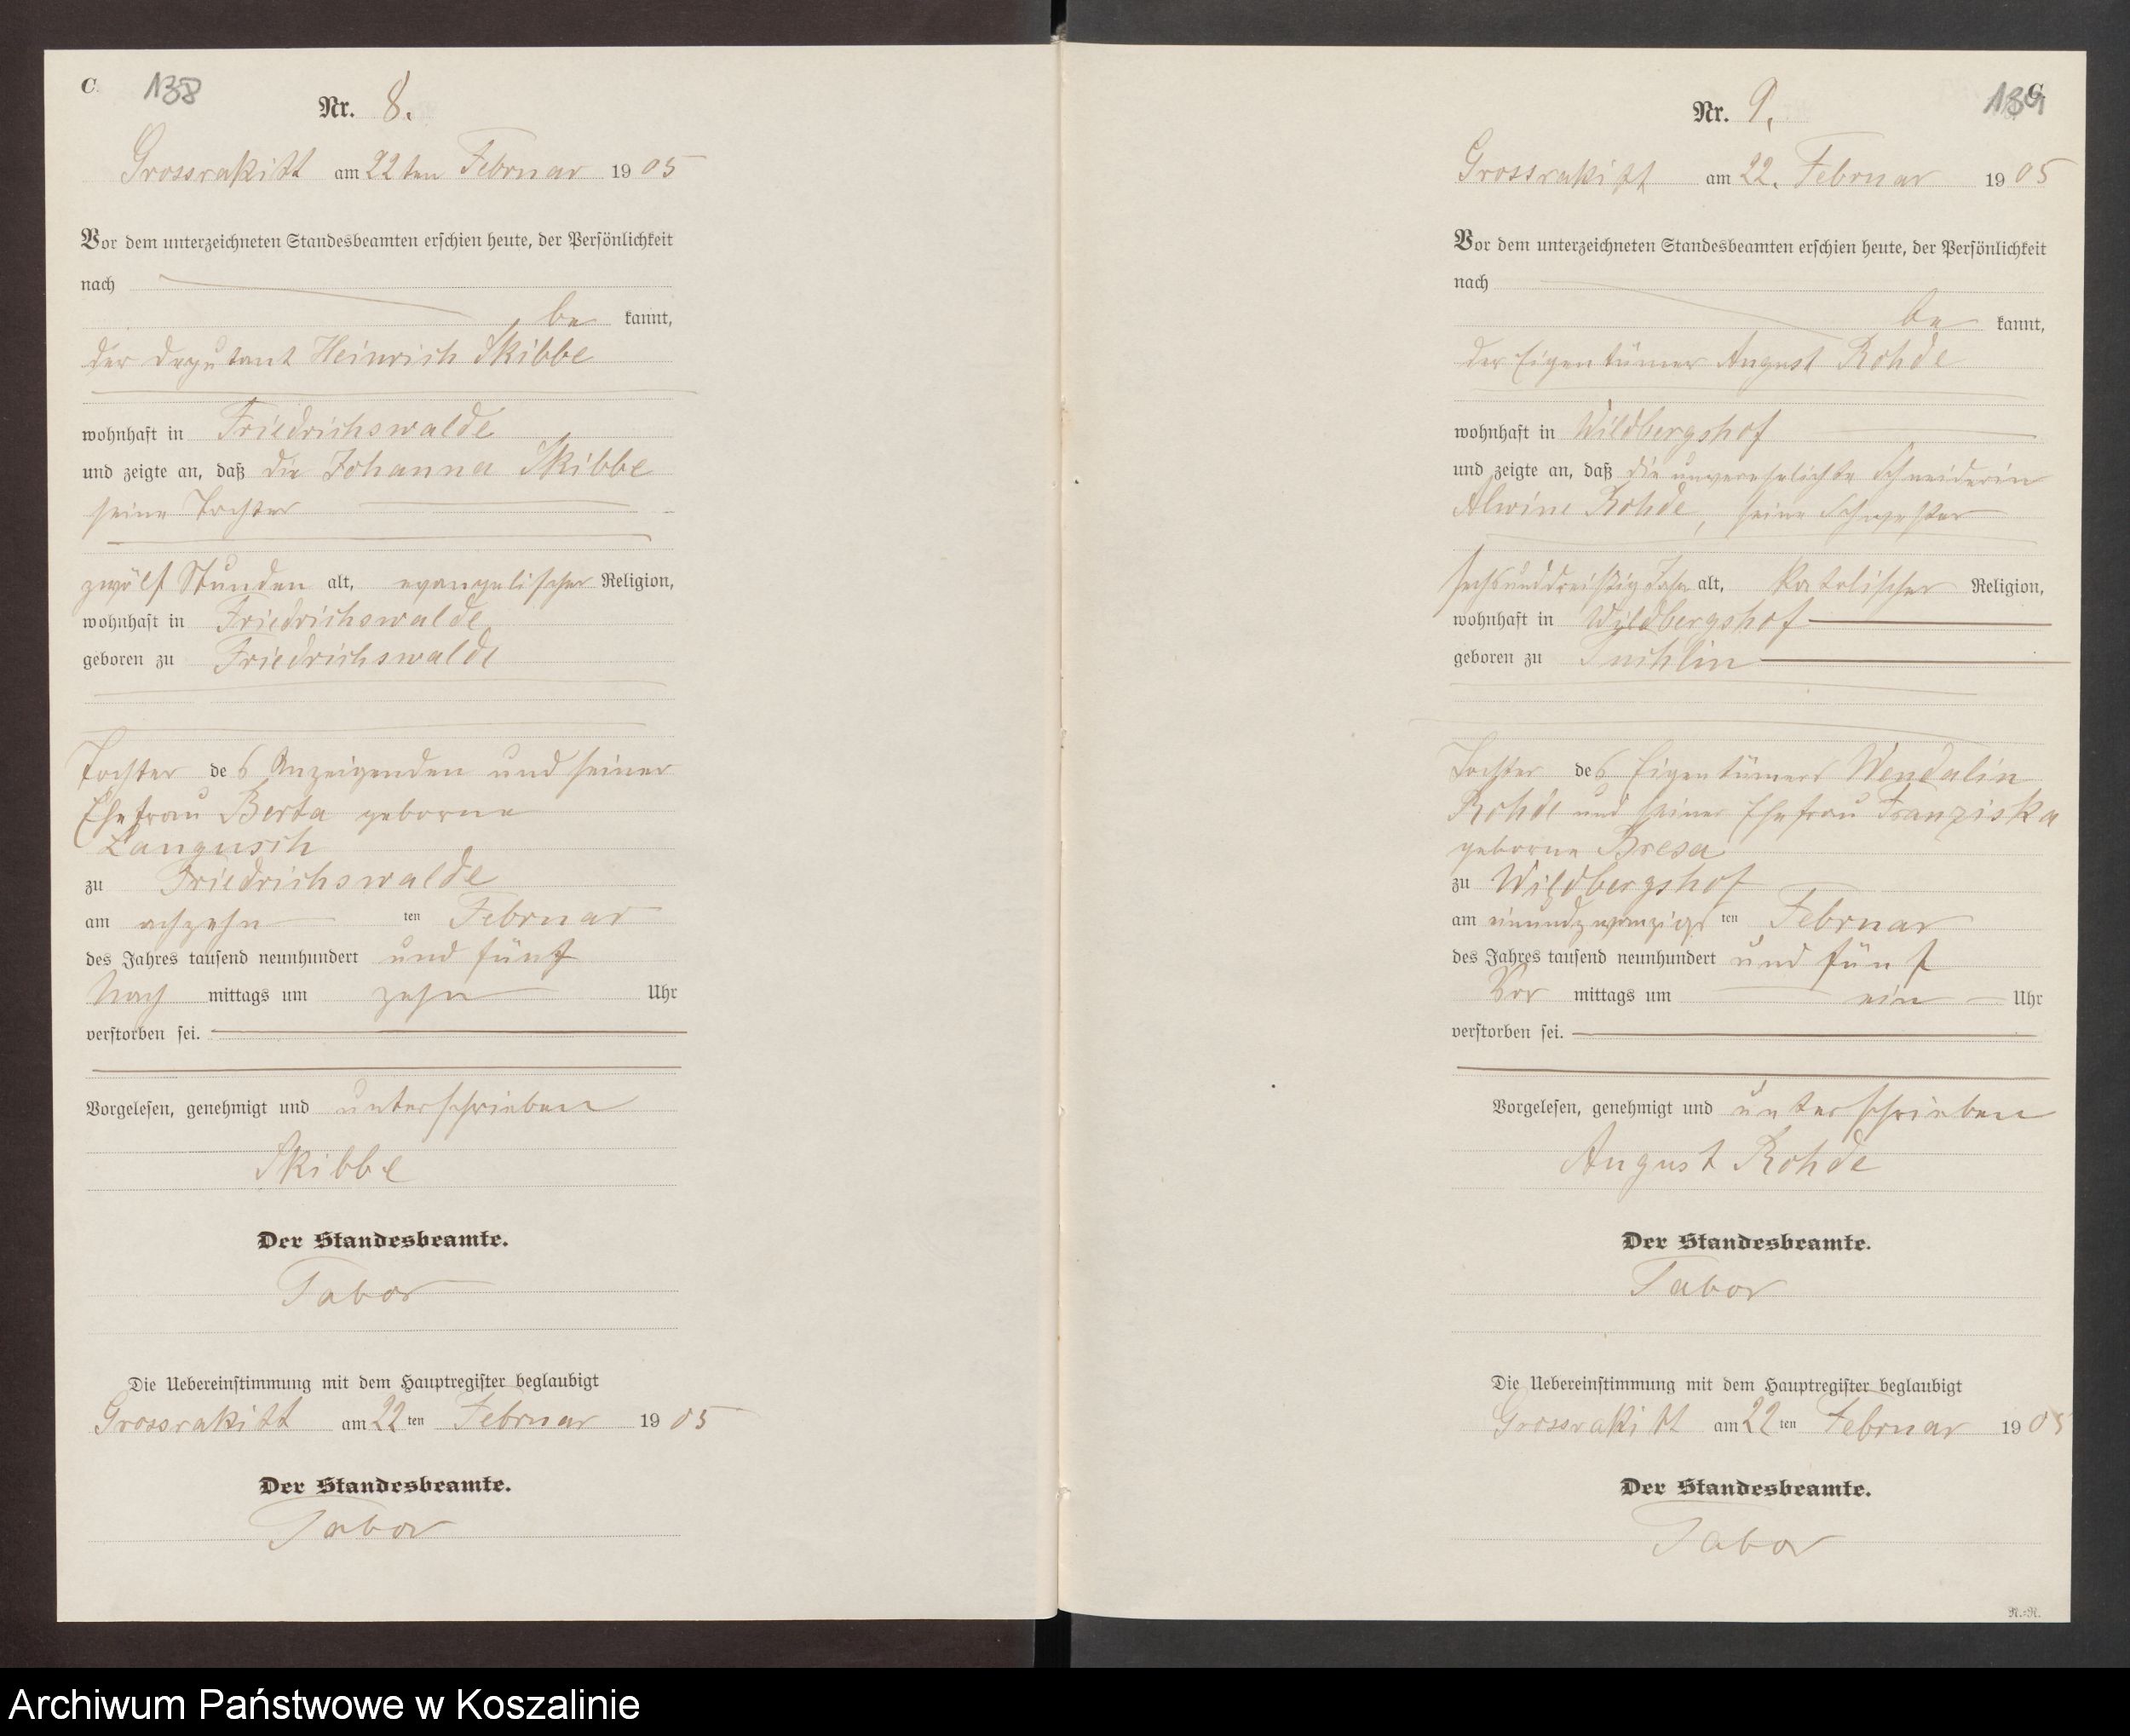 C.
138
Nr. 8.
Grossrakitt am 22ten Februar 1905
Vor dem unterzeichneten Standesbeamten erschien heute, der Persönlichkeit
nach
be kannt,
der Deputant Heinrich Skibbe
wohnhaft in Friedrichswalde
und zeigte an, daß die Johanna Skibbe
seine Tochter
zwölf Stunden alt, evangelischer Religion,
wohnhaft in Friedrichswalde
geboren zu Friedrichswalde
Tochter des Anzeigenden und seiner
Ehefrau Berta geborne
Langusch
zu Friedrichswalde
am achzehn ten Februar
des Jahres tausend neunhundert und fünf
Nach mittags um zehn Uhr
verstorben sei.
Vorgelesen, genehmigt und unterschrieben
Skibbe
Der Standesbeamte.
Tabor
Die Uebereinstimmung mit dem Hauptregister beglaubigt
Grossrakitt am 22ten Februar 1905
Der Standesbeamte.
Tabor
139
C.
Nr. 9.
Grossrakitt am 22. Februar 1905
Vor dem unterzeichneten Standesbeamten erschien heute, der Persönlichkeit
nach
be kannt,
der Eigentümer August Rohde
wohnhaft in Wildbergshof
und zeigte an, daß die unverehelichte Schneiderin
Alwine Rohde, seine Schwester
sechsunddreißig Jahr alt, katolischer Religion,
wohnhaft in Wildbergshof
geboren zu Tuchlin
Tochter des Eigentümers Wendalin
Rohde und seiner Ehefrau Franziska
geborne Bresa
zu Wildbergshof
am einundzwanzigs ten Februar
des Jahres tausend neunhundert und fünf
Vor mittags um ein Uhr
verstorben sei.
Vorgelesen, genehmigt und unterschrieben
August Rohde
Der Standesbeamte.
Tabor
Die Uebereinstimmung mit dem Hauptregister beglaubigt
Grossrakitt am 22ten Februar 1905
Der Standesbeamte.
Tabor
N.=N.
Archiwum Państwowe w Koszalinie